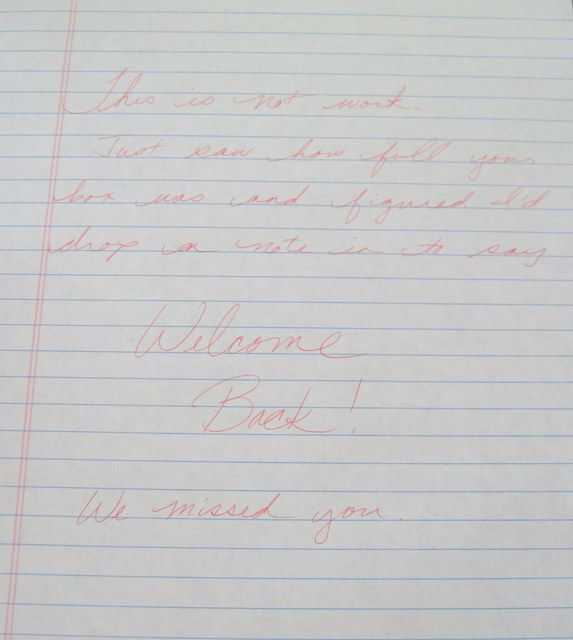 This is not work.
Just saw how full your
box was and figured I'd
drop a note in to say
Welcome
Back!
We missed you.